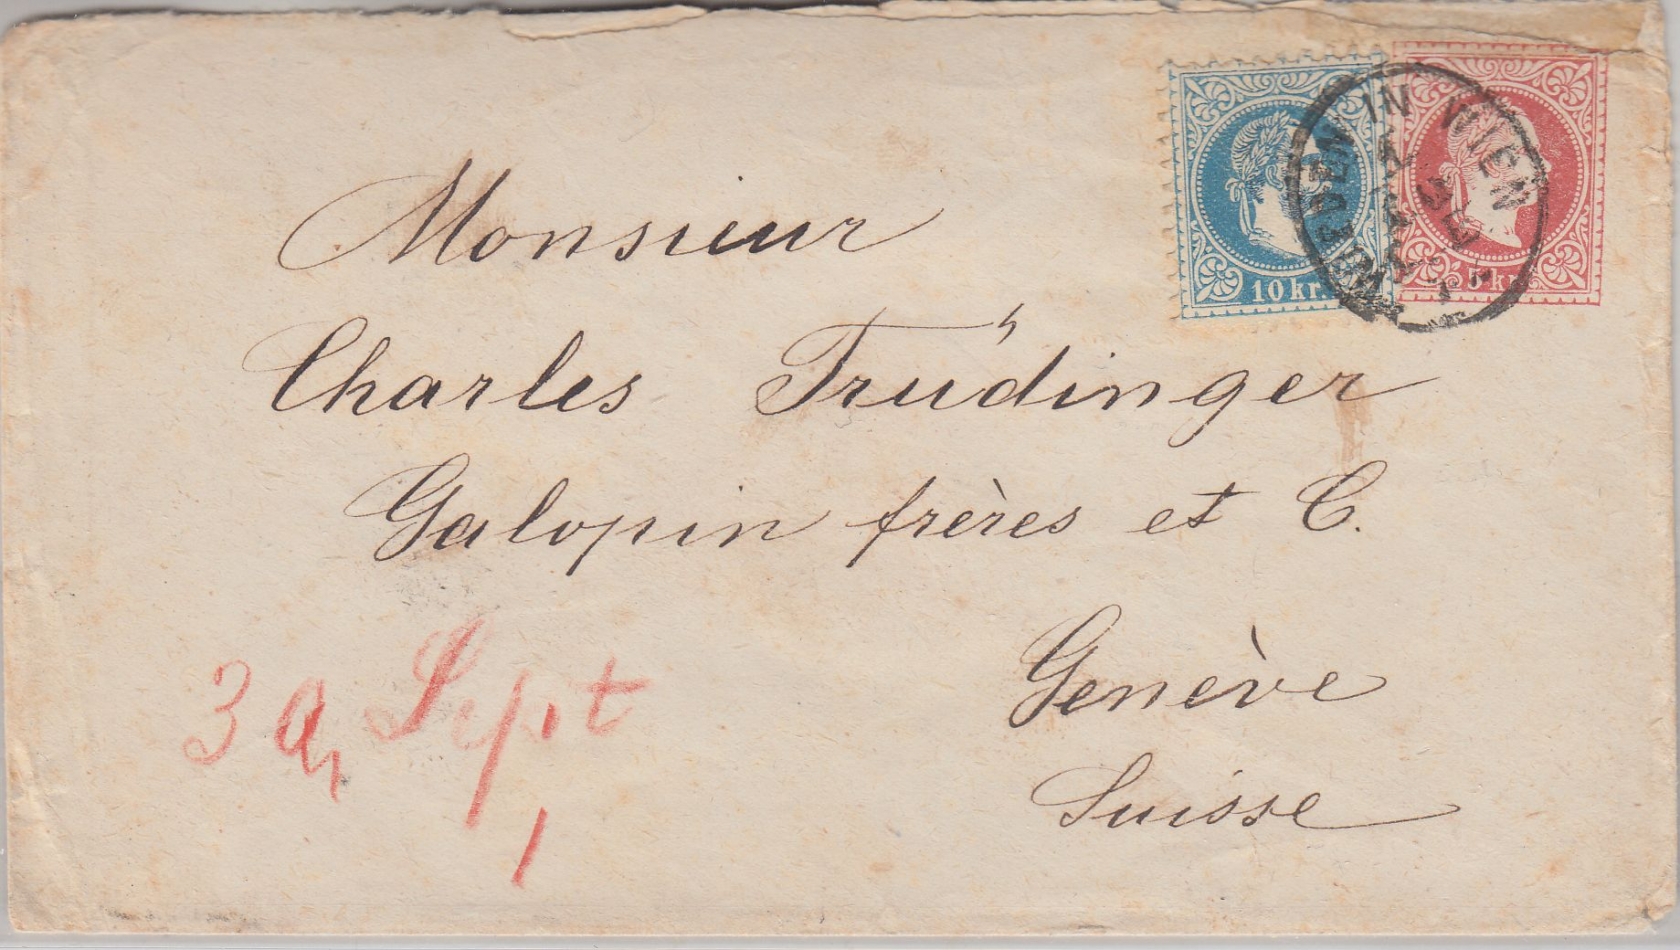 10 kr.
5 kr.
WIEDEN IN WIEN
Monsieur
Charles Trüdinger
Galopin frères et C.
Genève
Suisse
Sept